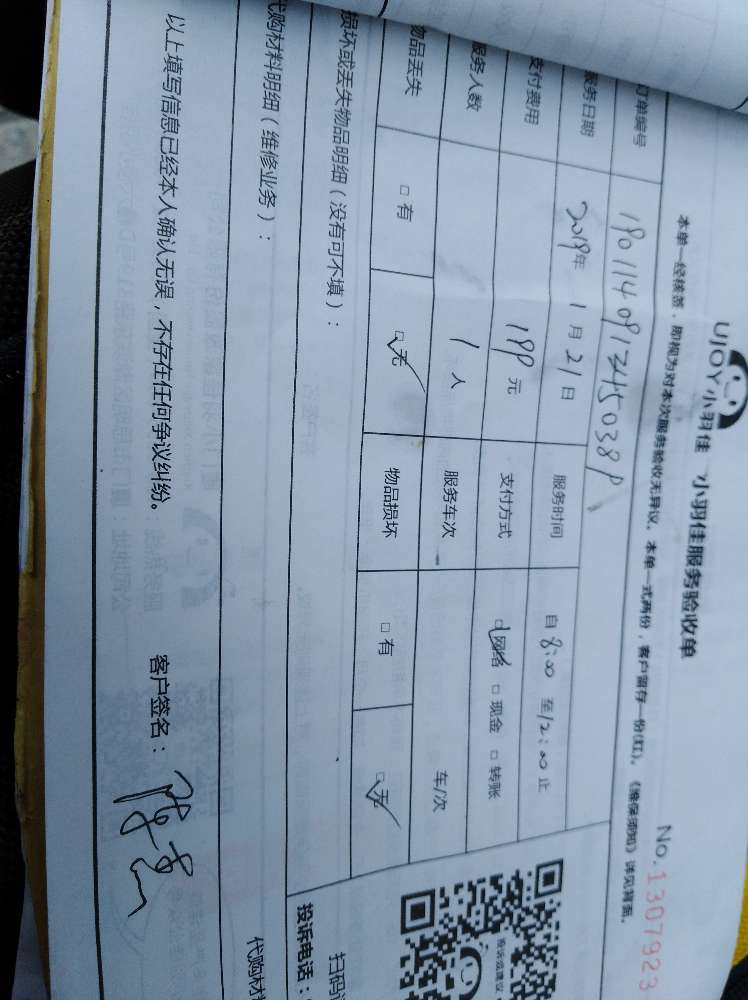 UJOY小羽佳 小羽佳服务验收单
No.1307923
本单一经核签，即视为对本次服务验收无异议。本单一式两份，客户留存一份(红)。《维保须知》详见背面。
订单编号
服务日期 2019年 1月21日 服务时间 自8:00至12:00止
支付费用 199元 支付方式 □网络 □现金 □转账
服务人数 1人 服务车次 车/次
物品丢失 □有 □无 物品损坏 □有 □无
损坏或丢失物品明细（没有可不填）：
代购材料明细（维修业务）：
以上填写信息已经本人确认无误，不存在任何争议纠纷。 客户签名：
投诉或建议
扫码
投诉电话：
代购材